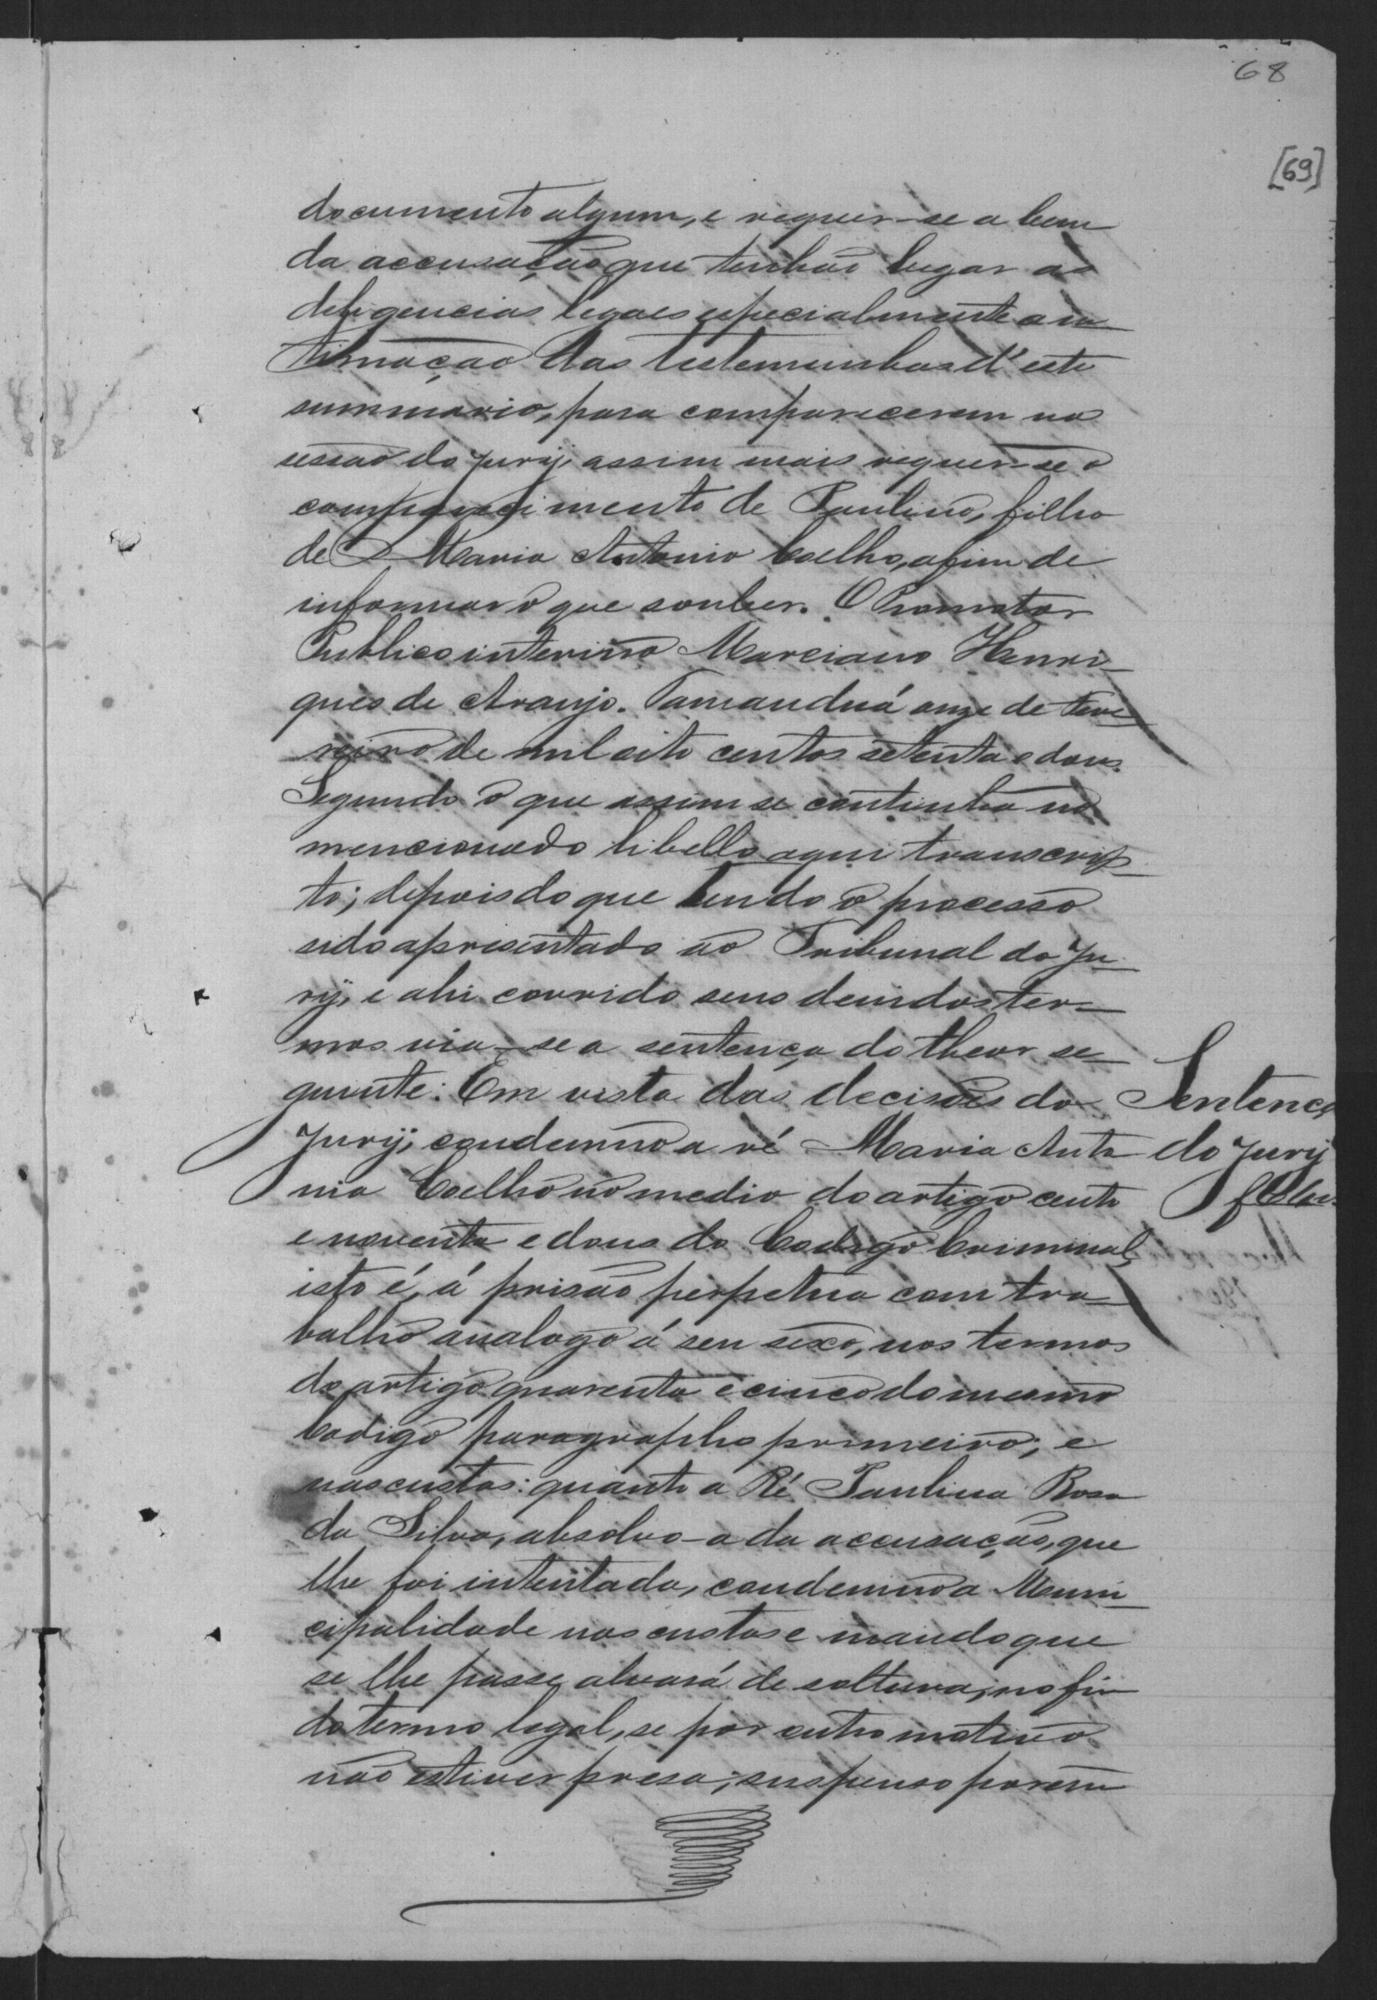 68
[69]
documento algum, e requer-se a bem
da accusação que tenhão lugar as
deligencias legaes especialmente a in
timação das testemunhas d'este
summario, para comparecerem na
sessão do Jury, assim mais requer-se o
comparecimento de Paulino, filho
de Maria Antonia Coelho, afim de
informar o que souber. O Promotor
Publico interino Marciano Henri-
ques de Araujo. Tamanduá onze de Feve
reiro de mil oito centos setenta e dous.
Segundo o que assim se continha no
mencionado libello aqui transcrip-
to; depois do que tendo o processo
sido apresentado ao Tribunal do Ju-
ry, e ahi corrido seus devidos ter-
mos via-se a sentença do theor se-
guinte: Em vista das decisões do
Jury, condemno a ré Maria Anto
nia Coelho no medio do artigo cento
e noventa e dous do Codigo Criminal,
isto é, á prisão perpetua com tra-
balho analogo á seu sexo, nos termos
do artigo quarenta e cinco do mesmo
Codigo paragrapho primeiro; e
nas custas: quanto a Ré Paulina Rosa
da Silva, absolvo-a da accusação, que
lhe foi intentada, condemno a Muni-
cipalidade nas custas e mando que
se lhe passe alvará de soltura, no fim
do termo legal, se por outro motivo
não estiver presa; suspenso porem
Sentença
do Jury